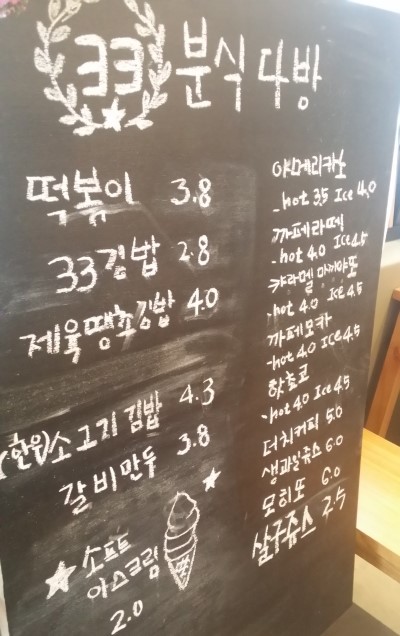 33 분식다방
떡볶이 3.8
33김밥 2.8
제육땡초김밥 4.0
(한우)소고기김밥 4.3
갈비만두 3.8
소프트
아스크림
2.0
아메리카노
-hot 3.5 Ice 4.0
까페라떼
-hot 4.0 Ice 4.5
캬라멜 마끼야또
-hot 4.0 Ice 4.5
까페모카
-hot 4.0 Ice 4.5
핫쵸코
-hot 4.0 Ice 4.5
더치커피 5.0
생과일쥬스 6.0
모히또 6.0
살구쥬스 2.5